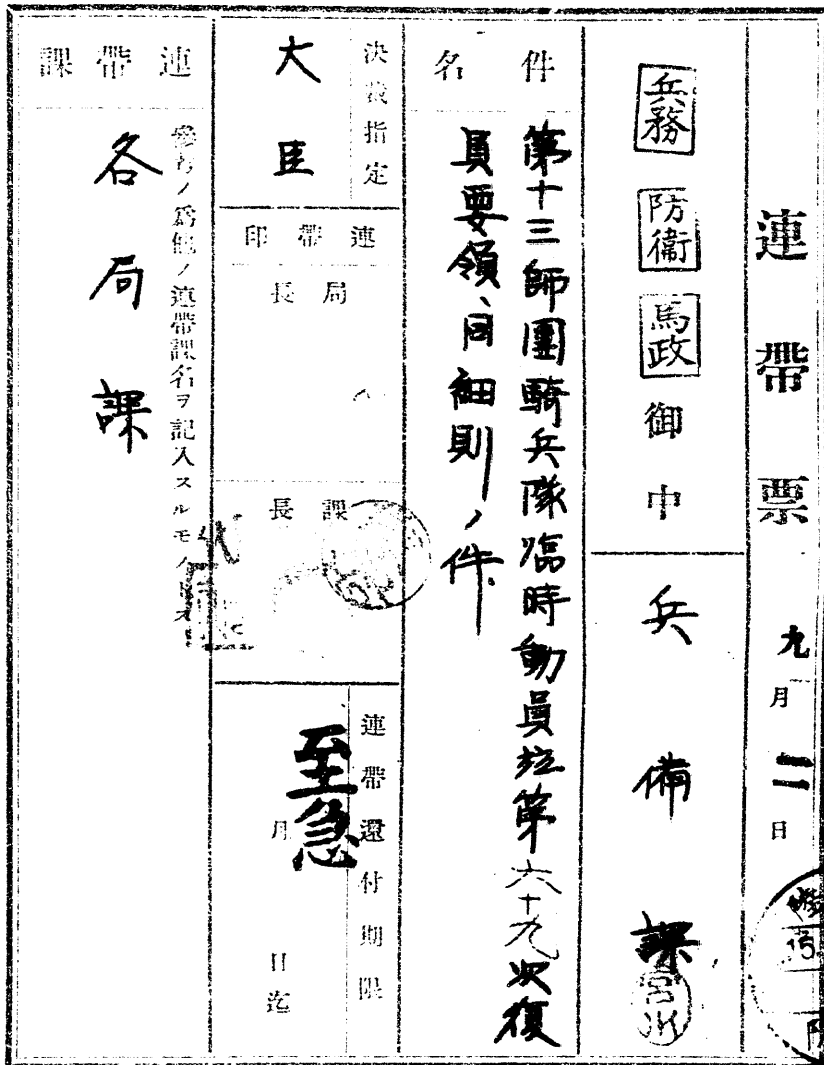 連帶票
九月二日
兵務 防衞 馬政 御中
兵備課
宮沢
件名
第十三師團騎兵隊臨時動員竝第六十九次復
員要領、同細則ノ件
決裁指定
大臣
連帶印
局長
課長
連帶還付期限
月 日迄
至急
連帶課
參考ノ爲他ノ連帶課名ヲ記入スルモノトス
各局課
15